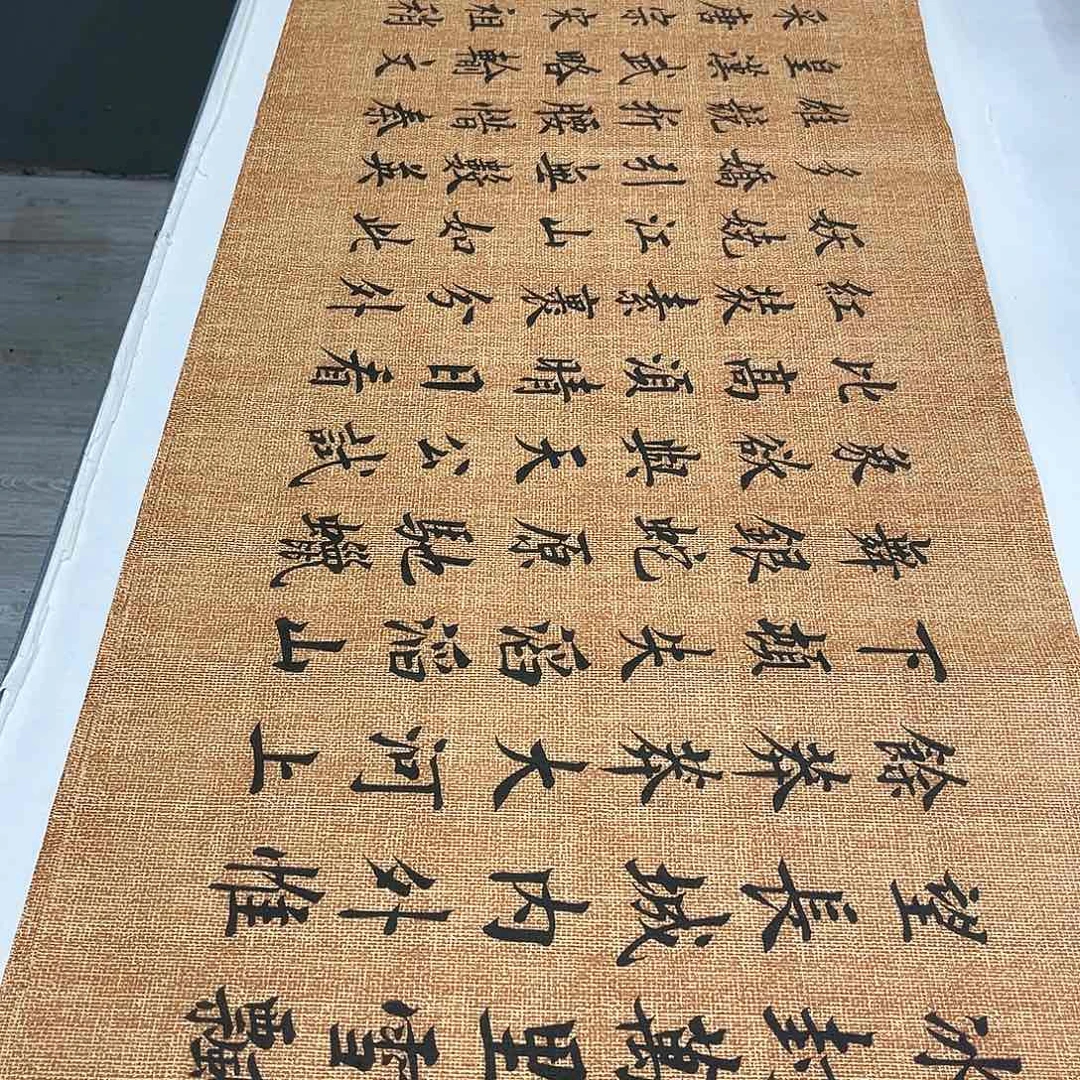 冰封萬里雪飄
望長城內外惟
餘莽莽大河上
下頓失滔滔山
舞銀蛇原馳蠟
象欲與天公試
比高須晴日看
紅裝素裹分外
妖嬈江山如此
多嬌引無數英
雄競折腰惜秦
皇漢武略輸文
采唐宗宋祖稍